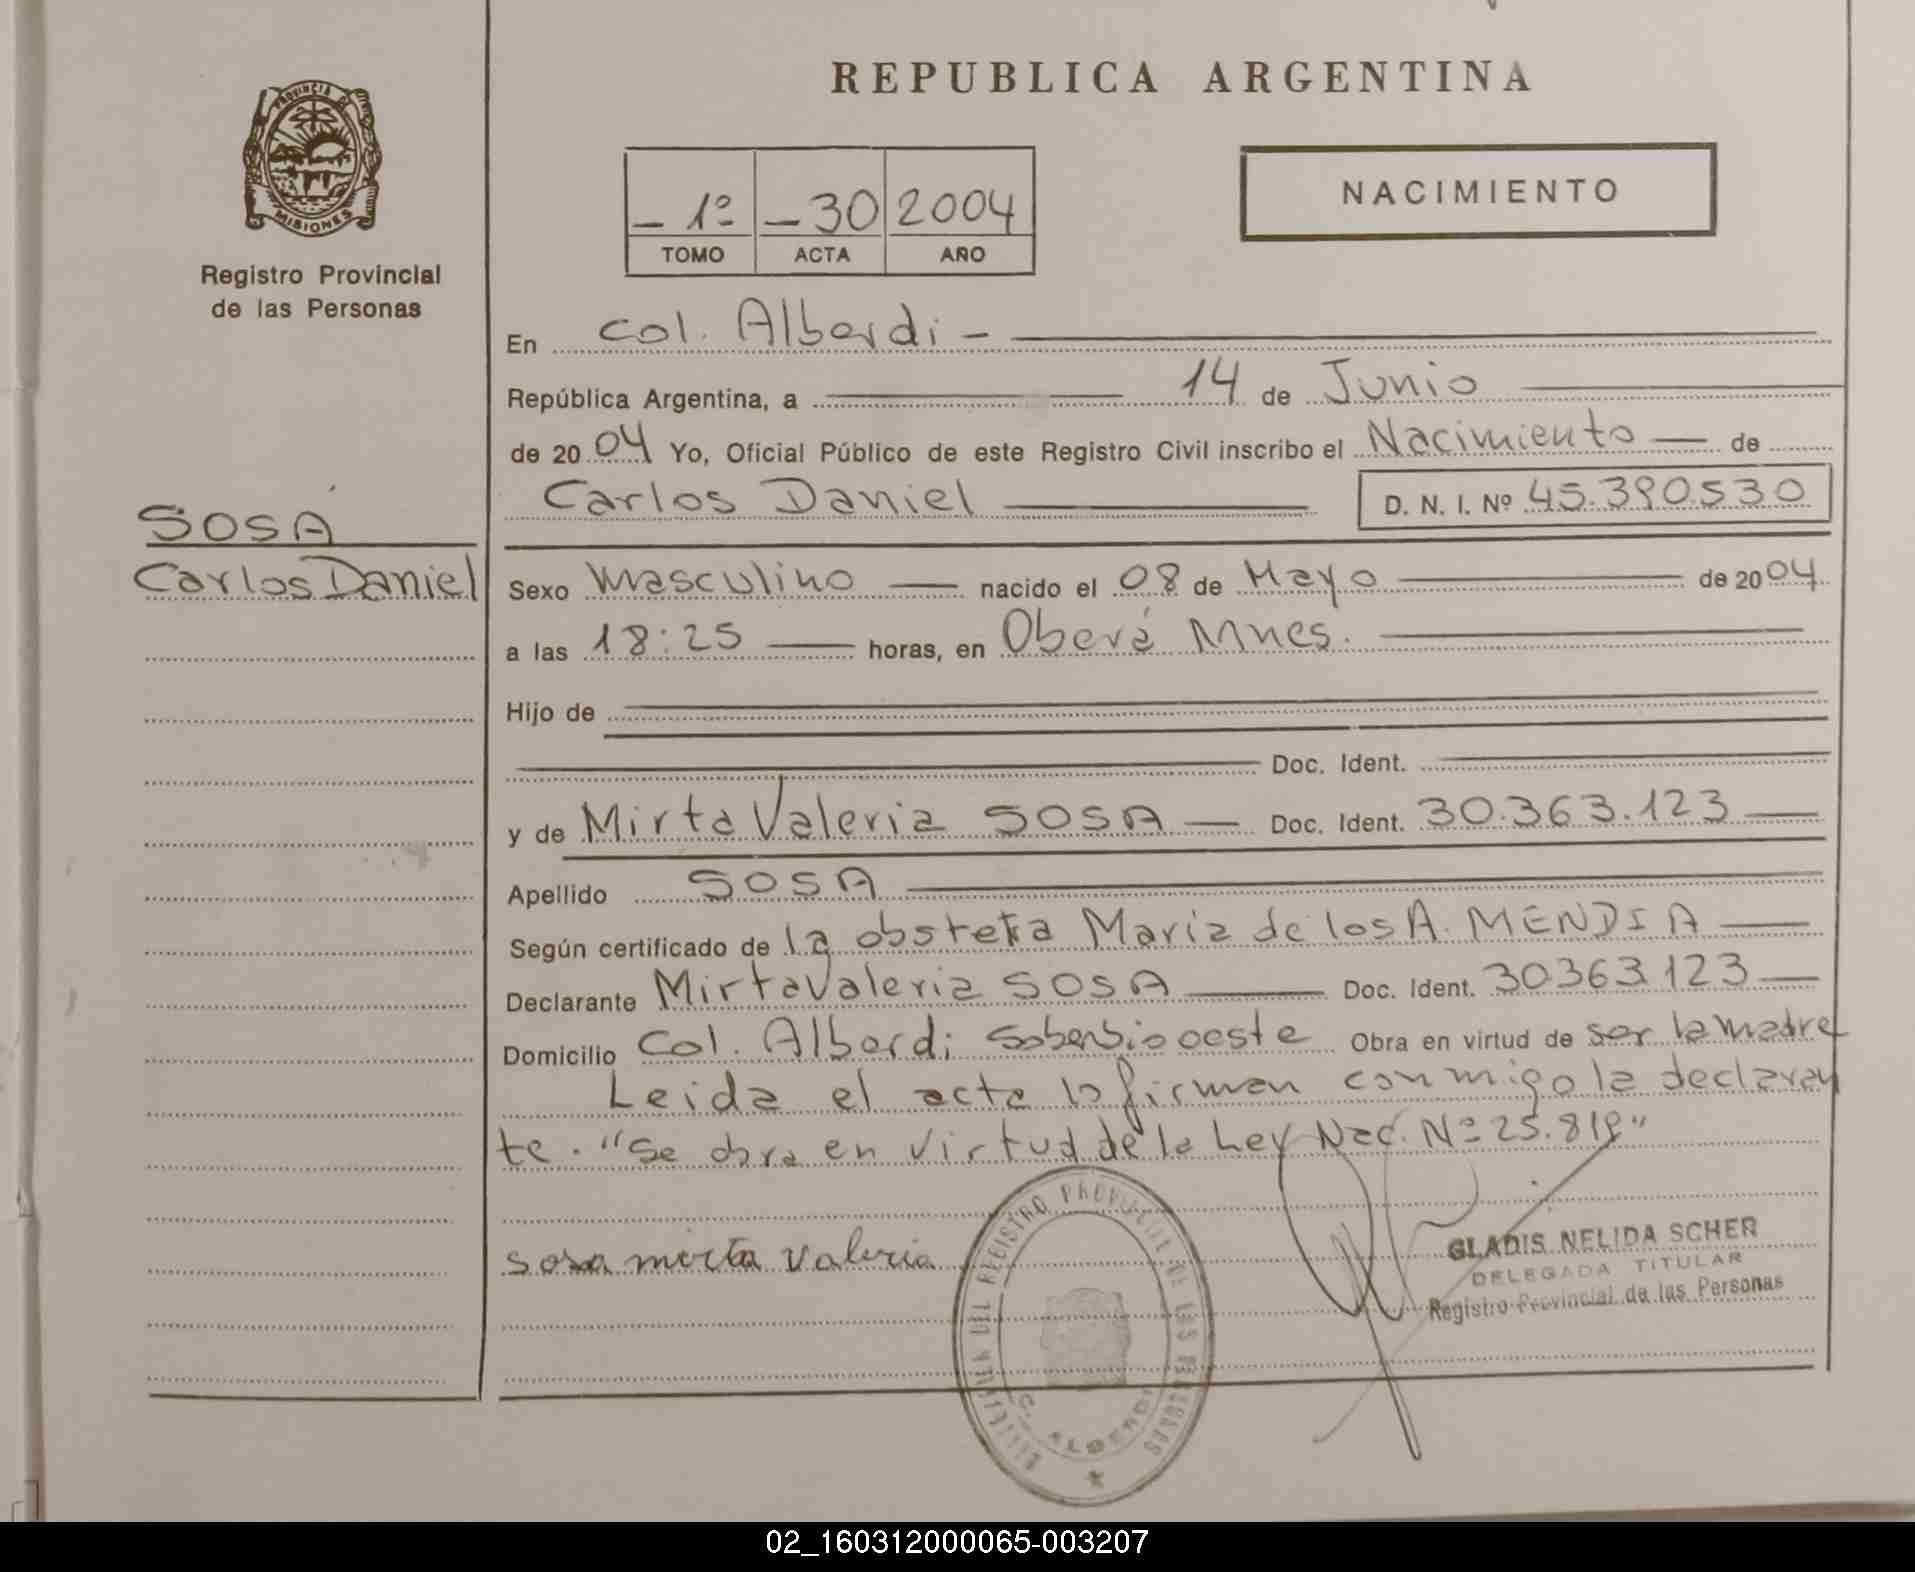 REPUBLICA ARGENTINA
PROVINCIA DE MISIONES
Registro Provincial
de las Personas
- 1º - 30 2004
TOMO ACTA AÑO
NACIMIENTO
En Col. Alberdi -
República Argentina, a 14 de Junio
de 2004 Yo, Oficial Público de este Registro Civil inscribo el Nacimiento de
Carlos Daniel D. N. I. Nº 45.390.530
SOSA
Carlos Daniel
Sexo Masculino nacido el 08 de Mayo de 2004
a las 18:25 horas, en Oberá Mnes.
Hijo de
Doc. Ident.
y de Mirta Valeria SOSA - Doc. Ident. 30.363.123
Apellido SOSA
Según certificado de la obstetra Maria de los A. MENDIA
Declarante Mirta Valeria SOSA Doc. Ident. 30363.123
Domicilio Col. Alberdi Soberbio oeste Obra en virtud de ser la madre
Leida el acta la firman conmigo la declaran
te. "Se obra en virtud de la Ley Nac. Nº 25.819"
sosa mirta valeria
REGISTRO PROVINCIAL DE LAS PERSONAS
C. ALBERDI
GLADIS NELIDA SCHER
DELEGADA TITULAR
Registro Provincial de las Personas
02_160312000065-003207